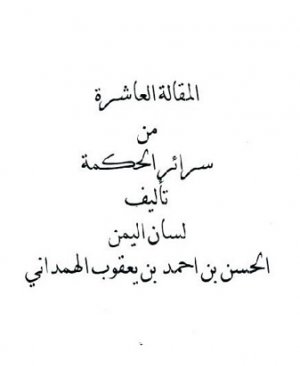 المقالة العاشرة
من
سرائر الحكمة
تأليف
لسان اليمن
الحسن بن احمد بن يعقوب الهمداني